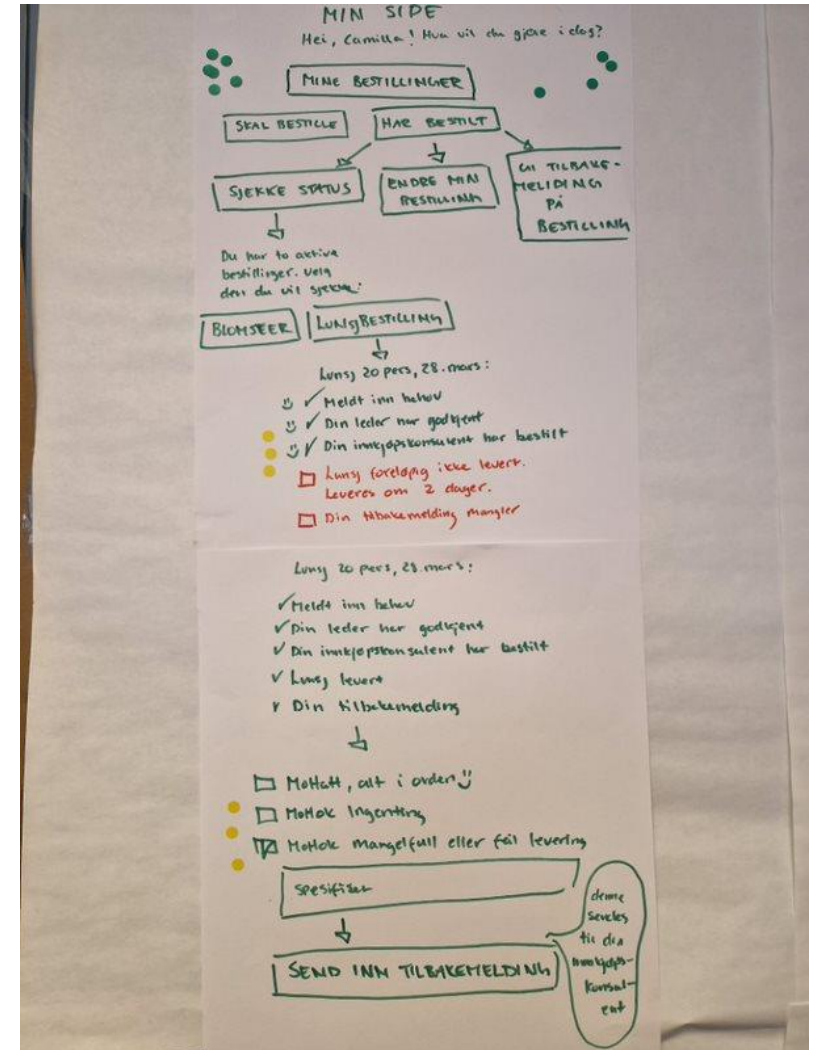 MIN SIDE
Hei, Camilla! Hva vil du gjøre i dag?
MINE BESTILLINGER
SKAL BESTILLE
HAR BESTILT
SJEKKE STATUS
ENDRE MIN
BESTILLING
GI TILBAKE-
MELDING
PÅ
BESTILLING
Du har to aktive
bestillinger. Velg
den du vil sjekke:
BLOMSTER
LUNSJBESTILLING
Lunsj 20 pers, 28. mars:
✓ Meldt inn behov
✓ Din leder har godkjent
✓ Din innkjøpskonsulent har bestilt
Lunsj foreløpig ikke levert.
Leveres om 2 dager.
Din tilbakemelding mangler
Lunsj 20 pers, 28. mars:
✓ Meldt inn behov
✓ Din leder har godkjent
✓ Din innkjøpskonsulent har bestilt
✓ Lunsj levert
✓ Din tilbakemelding
Mottatt, alt i orden
Mottok Ingenting
Mottok mangelfull eller feil levering
Spesifiser
SEND INN TILBAKEMELDING
denne
sendes
til din
innkjøps-
konsul-
ent